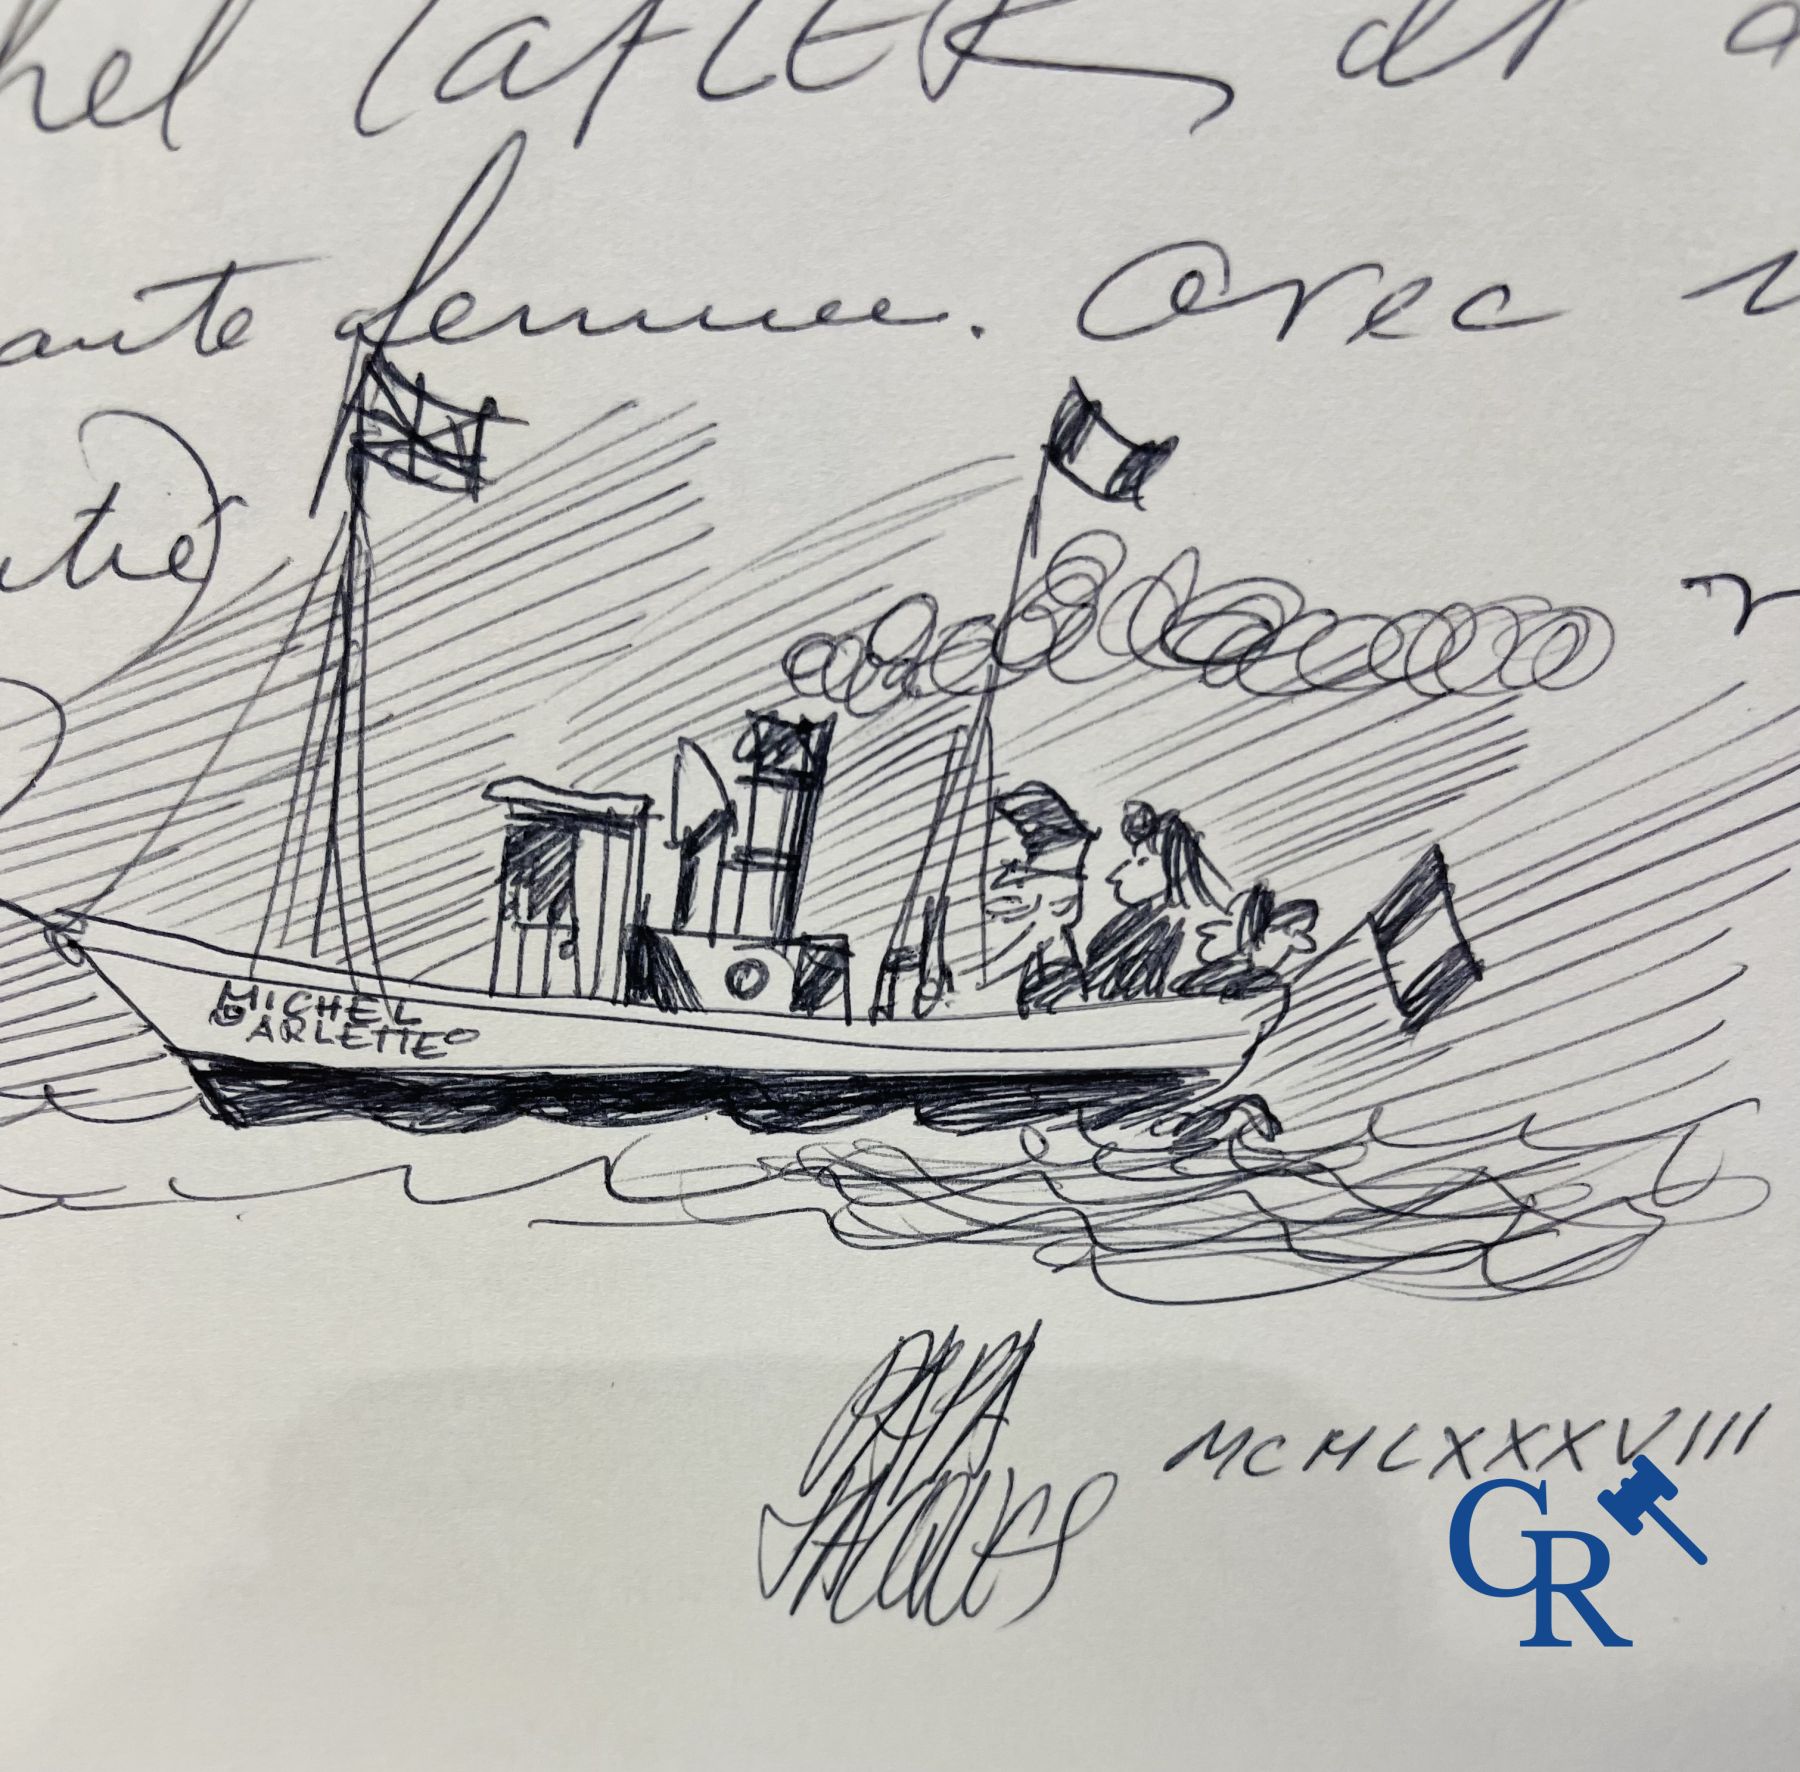 hel LafLER et a
ante femme. Avec
itié
MICHEL
& ARLETTE
PAPA
JACQUES
MCMLXXXVIII
CR